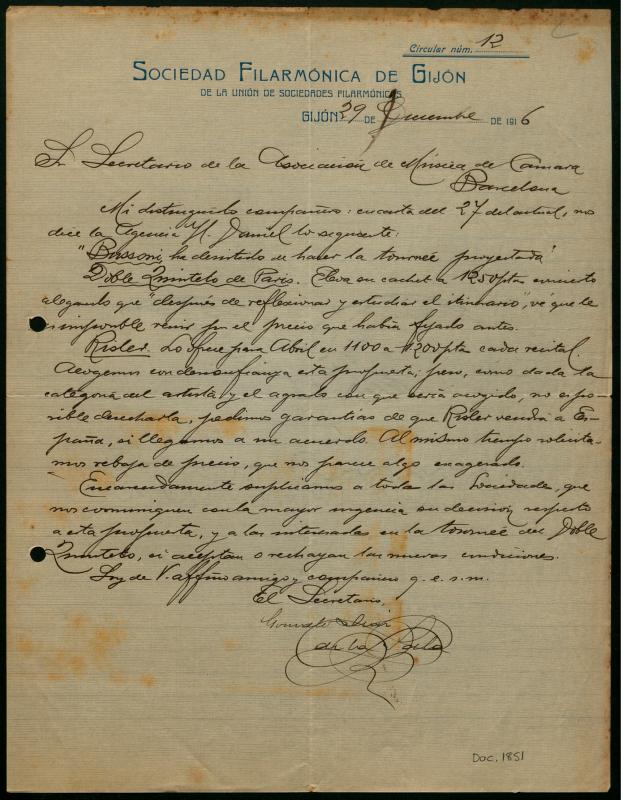 Circular núm. 12
SOCIEDAD FILARMÓNICA DE GIJÓN
DE LA UNIÓN DE SOCIEDADES FILARMÓNICAS
GIJÓN 29 DE Diciembre DE 1916
Sr Secretario de la Asociación de Música de Camara
Barcelona
Mi distinguido compañero: en carta del 27 del actual, nos
dice la Agencia H. Daniel lo siguente:
"Bussoni, ha desistido de hacer la tourneé proyectada"
Doble Quinteto de Paris. Eleva su cachet a 1250 ptas concierto
alegando que "despues de reflexionar y estudiar el itinerario", vé que le
es imposible venir por el precio que habia fijado antes.
Risler. Lo ofrece para Abril en 1100 a 1200 pta cada recital.
Acogemos con desconfianza esta propuesta; pero, como dada la
categoria del artista y el agrado con que seria acogido, no es po-
sible desecharla, pedimos garantias de que Risler vendrá a Es-
paña, si llegamos a un acuerdo. Al mismo tiempo solicita-
mos rebaja de precio, que nos parece algo exagerado.
Encarecidamente suplicamos a todas las Sociedades, que
nos comuniquen con la mayor urgencia su decisión respecto
a esta propuesta, y a las interesadas en la tourneé del Doble
Quinteto, si aceptan o rechazan las nuevas condiciones.
Soy de V. affmo amigo y compañero q. e. s. m.
El Secretario,
Gonzalo
de la
Doc. 1851